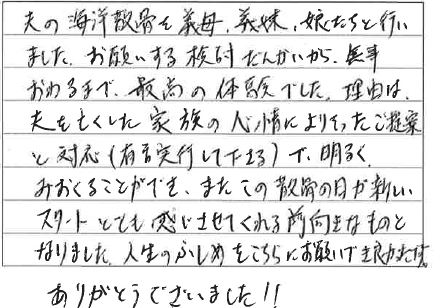 夫の海洋散骨を義母、義妹、娘たちと行い
ました。お願いする検討だんかいから、無事
おわるまで、最高の体験でした。理由は、
夫を亡くした家族の心情によりそったご提案
と対応（有言実行して下さる）で、明るく、
みおくることができ、またこの散骨の日が新しい
スタートとても感じさせてくれる前向きなものと
なりました。人生のふしめをこちらにお願いでき良かったです。
ありがとうございました!!